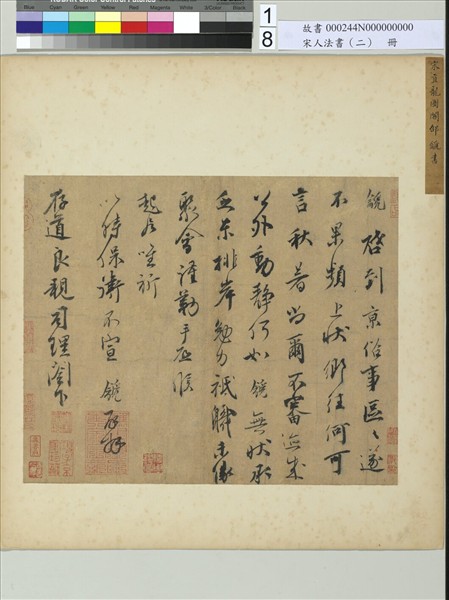 Blue Cyan Green Yellow Red Magenta White 3/Color Black
1
8
故書 000244N000000000
宋人法書（二） 冊
宋直龍圖閣邵書
啓到京俗事區〻遂
不果頻上狀鄉往何可
言秋暑尚爾不審涖職
以外動靜何如無狀承
乏東排岸勉力祗職未緣
聚會謹勒手啓候
起居唯祈
以時保衛不宣再拜
存道良親司理閣下